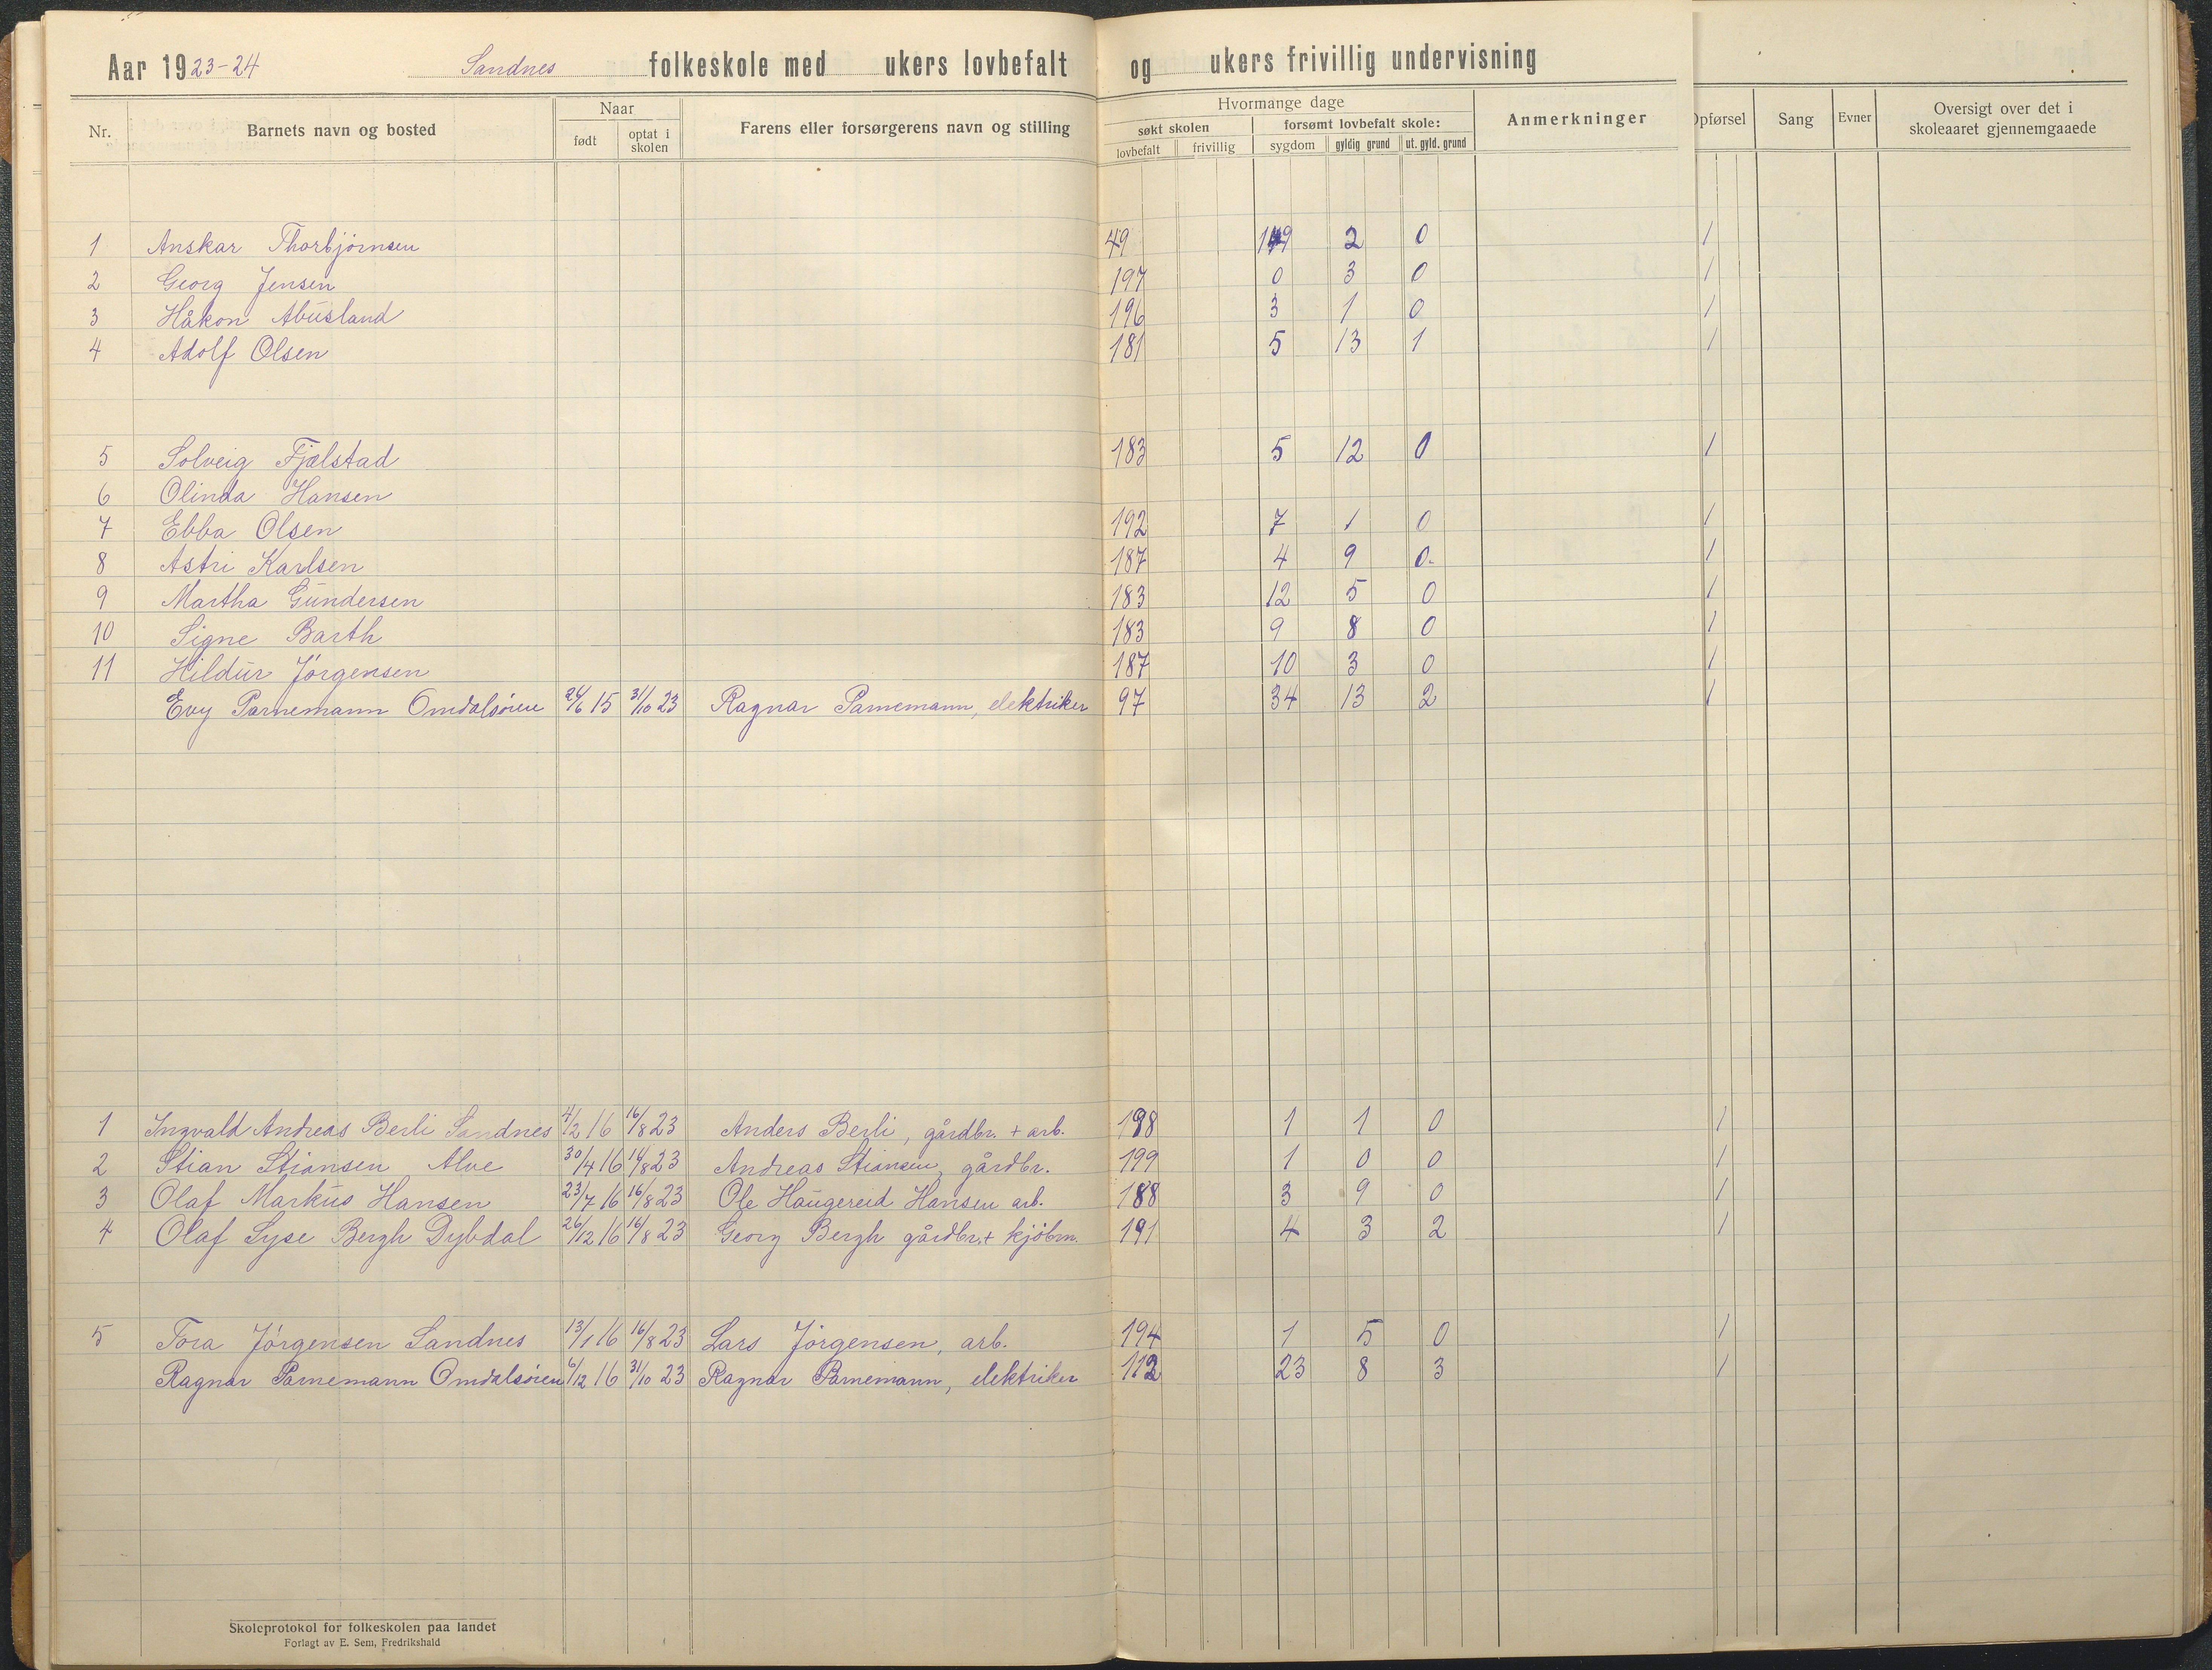 Aar 1923-24 Sandnes folkeskole med ukers lovbefalt og ukers frivillig undervisning
Nr. Barnets navn og bosted Naar født optat i skolen Farens eller forsørgerens navn og stilling Hvormange dage søkt skolen lovbefalt frivillig forsømt lovbefalt skole: sygdom gyldig grund ut. gyld. grund Anmerkninger Opførsel Sang Evner Oversigt over det i skoleaaret gjennemgaaede
1 Anskar Thorbjørnsen 49 149 2 0 1
2 Georg Jensen 197 0 3 0 1
3 Håkon Abusland 196 3 1 0 1
4 Adolf Olsen 181 5 13 1 1
5 Solveig Fjælstad 183 5 12 0 1
6 Olinda Hansen
7 Ebba Olsen 192 7 1 0 1
8 Astri Karlsen 187 4 9 0. 1
9 Martha Gundersen 183 12 5 0 1
10 Signe Barth 183 9 8 0 1
11 Hildur Jørgensen 187 10 3 0 1
Evy Parnemann Omdalsøren 24/6 15 31/10 23 Ragnar Parnemann, elektriker 97 34 13 2 1
1 Ingvald Andreas Berli Sandnes 4/2 16 16/8 23 Anders Berli, gårdbr. + arb. 198 1 1 0 1
2 Stian Stiansen Alve 30/4 16 16/8 23 Andreas Stiansen, gårdbr. 199 1 0 0 1
3 Olaf Markus Hansen 23/7 16 16/8 23 Ole Haugereid Hansen arb. 188 3 9 0 1
4 Olaf Syse Bergh Dybdal 26/12 16 16/8 23 Georg Bergh gårdbr. + kjøbm. 191 4 3 2 1
5 Tora Jørgensen Sandnes 13/1 16 16/8 23 Lars Jørgensen, arb. 194 1 5 0 1
Ragnar Parnemann Omdalsøren 6/12 16 31/10 23 Ragnar Parnemann, elektriker 112 23 8 3 1
Skoleprotokol for folkeskolen paa landet
Forlagt av E. Sem, Fredrikshald